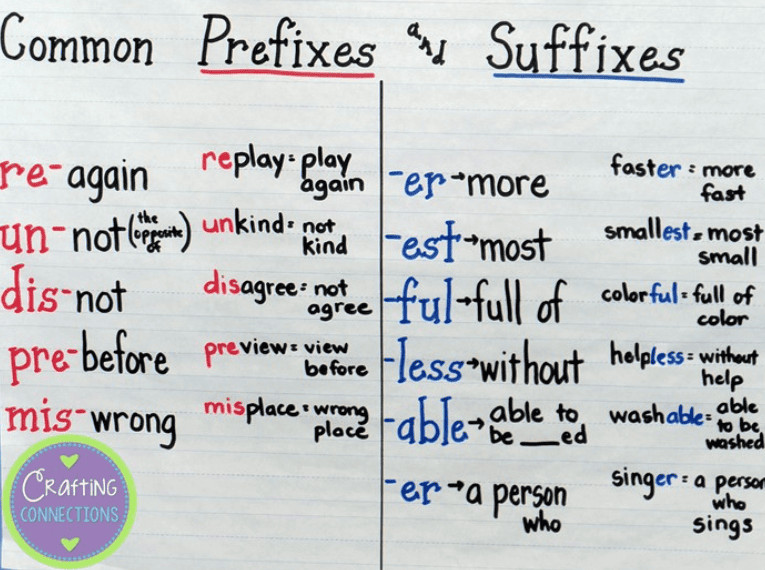 Common Prefixes and Suffixes
re- again
replay = play
again
un- not (the
opposite
of)
unkind = not
kind
dis- not
disagree = not
agree
pre- before
preview = view
before
mis- wrong
misplace = wrong
place
-er → more
faster = more
fast
-est → most
smallest = most
small
-ful → full of
colorful = full of
color
-less → without
helpless = without
help
-able → able to
be ___ed
washable = able
to be
washed
-er → a person
who
singer = a person
who
sings
Crafting
CONNECTIONS